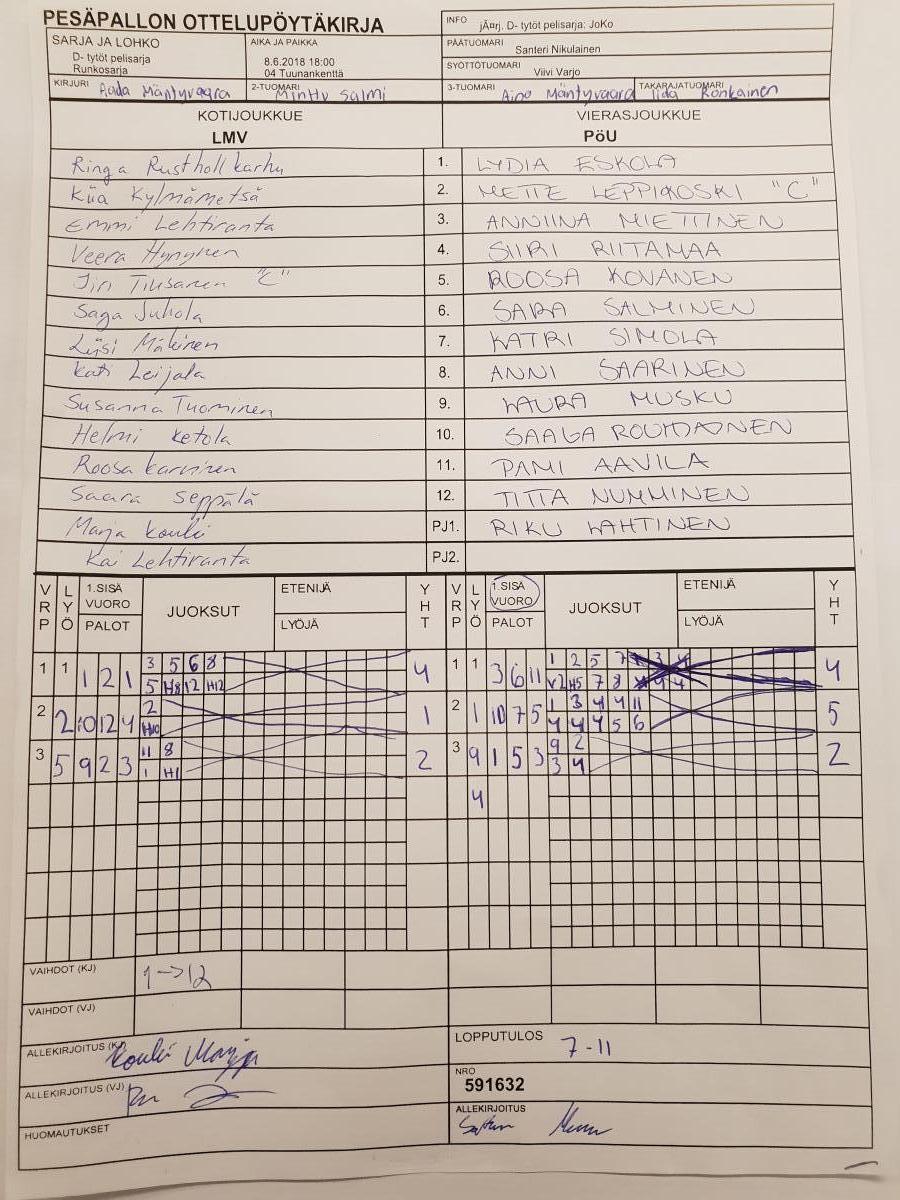 PESÄPALLON OTTELUPÖYTÄKIRJA
INFO jÃ¤rj. D- tytöt pelisarja: JoKo
SARJA JA LOHKO
D- tytöt pelisarja
Runkosarja
AIKA JA PAIKKA
8.6.2018 18:00
04 Tuunankenttä
PÄÄTUOMARI Santeri Nikulainen
SYÖTTÖTUOMARI Viivi Varjo
KIRJURI Aada Mäntyvaara
2-TUOMARI Minttu Salmi
3-TUOMARI Aino Mäntyvaara
TAKARAJATUOMARI Iida Ronkainen
KOTIJOUKKUE
LMV
VIERASJOUKKUE
PöU
Ringa Rusthollkarhu 1. LYDIA ESKOLA
Kiia Kylmämetsä 2. METTE LEPPIKOSKI "C"
Emmi Lehtiranta 3. ANNIINA MIETTINEN
Veera Hynynen 4. SIIRI RIITAMAA
Iiri Tiusanen "C" 5. ROOSA KOVANEN
Saga Juhola 6. SARA SALMINEN
Liisi Mäkinen 7. KATRI SIMOLA
Kati Leijala 8. ANNI SAARINEN
Susanna Tuominen 9. LAURA MUSKU
Helmi Ketola 10. SAAGA
Roosa Karvinen 11. PAMI AAVILA
Saara Seppälä 12. TITTA NUMMINEN
Marja Kouki PJ1. RIKU LAHTINEN
Kai Lehtiranta PJ2.
VRP LYÖ 1.SISÄ VUORO PALOT JUOKSUT ETENIJÄ LYÖJÄ YHT
VRP LYÖ 1.SISÄ VUORO PALOT JUOKSUT ETENIJÄ LYÖJÄ YHT
1 1 1 2 1 3 5 6 8 4 1 1 3 6 11 1 2 5 7 3 4 4
5 H8 12 H12 V2 H5 7 8 4 4
2 2 10 12 4 2 1 2 1 10 7 5 1 3 4 4 11 5
H10 4 4 4 5 6
3 5 9 2 3 11 8 2 3 9 1 5 3 9 2 2
1 H1 3 4
4
VAIHDOT (KJ) 1→12
VAIHDOT (VJ)
ALLEKIRJOITUS (KJ) Kouki Marja
LOPPUTULOS 7-11
ALLEKIRJOITUS (VJ)
NRO
591632
HUOMAUTUKSET
ALLEKIRJOITUS